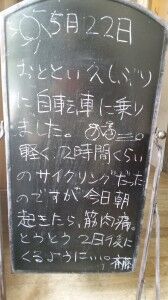 5月22日
おととい久しぶり
に自転車に乗り
ました。
軽く2時間くらい
のサイクリングだった
のですが今日朝
起きたら、筋肉痛。
とうとう2日後に
くるように!!。